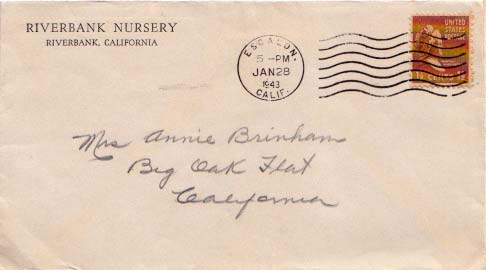 RIVERBANK NURSERY
RIVERBANK, CALIFORNIA
ESCALON.
5 - PM
JAN 28
1943
CALIF.
UNITED
STATES
POSTAGE
Mrs Annie Brinham
Big Oak Flat
California